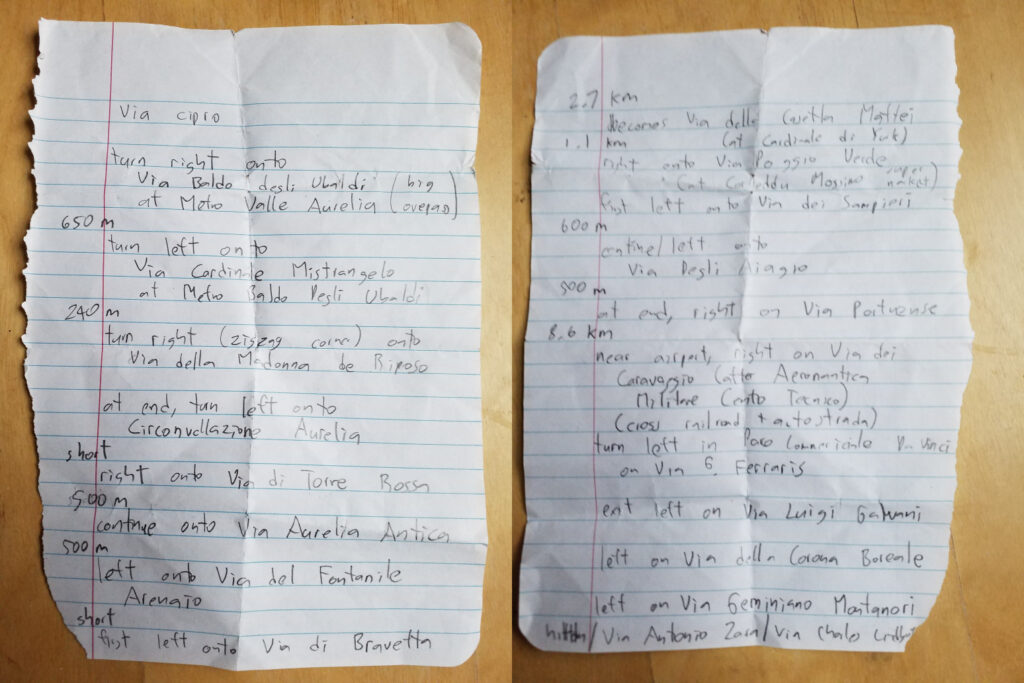 Via cipro
turn right onto
Via Baldo degli Ubaldi (big
at Metro Valle Aurelia overpass)
650 m
turn left onto
Via Cardinale Mistrangelo
at Metro Baldo Degli Ubaldi
240 m
turn right (zigzag corner) onto
Via della Madonna de Riposo
at end, turn left onto
Circonvallazione Aurelia
short
right onto Via di Torre Rossa
500 m
continue onto Via Aurelia Antica
500 m
left onto Via del Fontanile
Arenato
short
first left onto Via di Bravetta
2.7 km
becomes Via della Casetta Mattei
1.1 km (at Cardinale di York)
right onto Via Poggio Verde
(at Mossimo super
market)
first left onto Via dei Sampieri
600 m
left onto
Via Degli
500 m
at end, right on Via Portuense
8.6 km
near airport, right on Via dei
Caravaggio (after Aeronautica
Militare Cento Tecnico)
(cross railroad + autostrada)
turn left in Parco Commericiale Da Vinci
on Via G. Ferraris
left on Via Luigi Galvani
left on Via della Corona Boreale
left on Via Geminiano Montanari
/Via Antonio Zara/Via